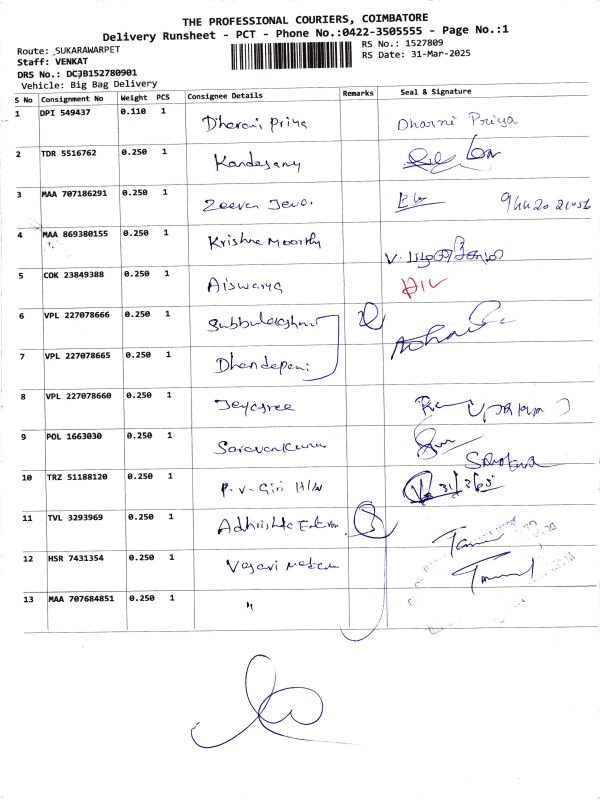 THE PROFESSIONAL COURIERS, COIMBATORE
Delivery Runsheet - PCT - Phone No.:0422-3505555 - Page No.:1
Route: SUKARAWARPET
RS No.: 1527809
Staff: VENKAT
RS Date: 31-Mar-2025
DRS No.: DC3B152780901
Vehicle: Big Bag Delivery
S No Consignment No Weight PCS Consignee Details Remarks Seal & Signature
1 DPI 549437 0.110 1 Dharani Priya Dharni Priya
2 TDR 5516762 0.250 1 Kandasamy
3 MAA 707186291 0.250 1
4 MAA 869380155 0.250 1 Krishna Moorthy
5 COK 23849388 0.250 1 Aiswarya
6 VPL 227078666 0.250 1 Subbulakshmi
7 VPL 227078665 0.250 1 Dhandapani
8 VPL 227078660 0.250 1 Jeyasree
9 POL 1663030 0.250 1 Saravanakumar
10 TRZ 51188120 0.250 1 P.V. Giri
11 TVL 3293969 0.250 1
12 HSR 7431354 0.250 1
13 MAA 707684851 0.250 1 "